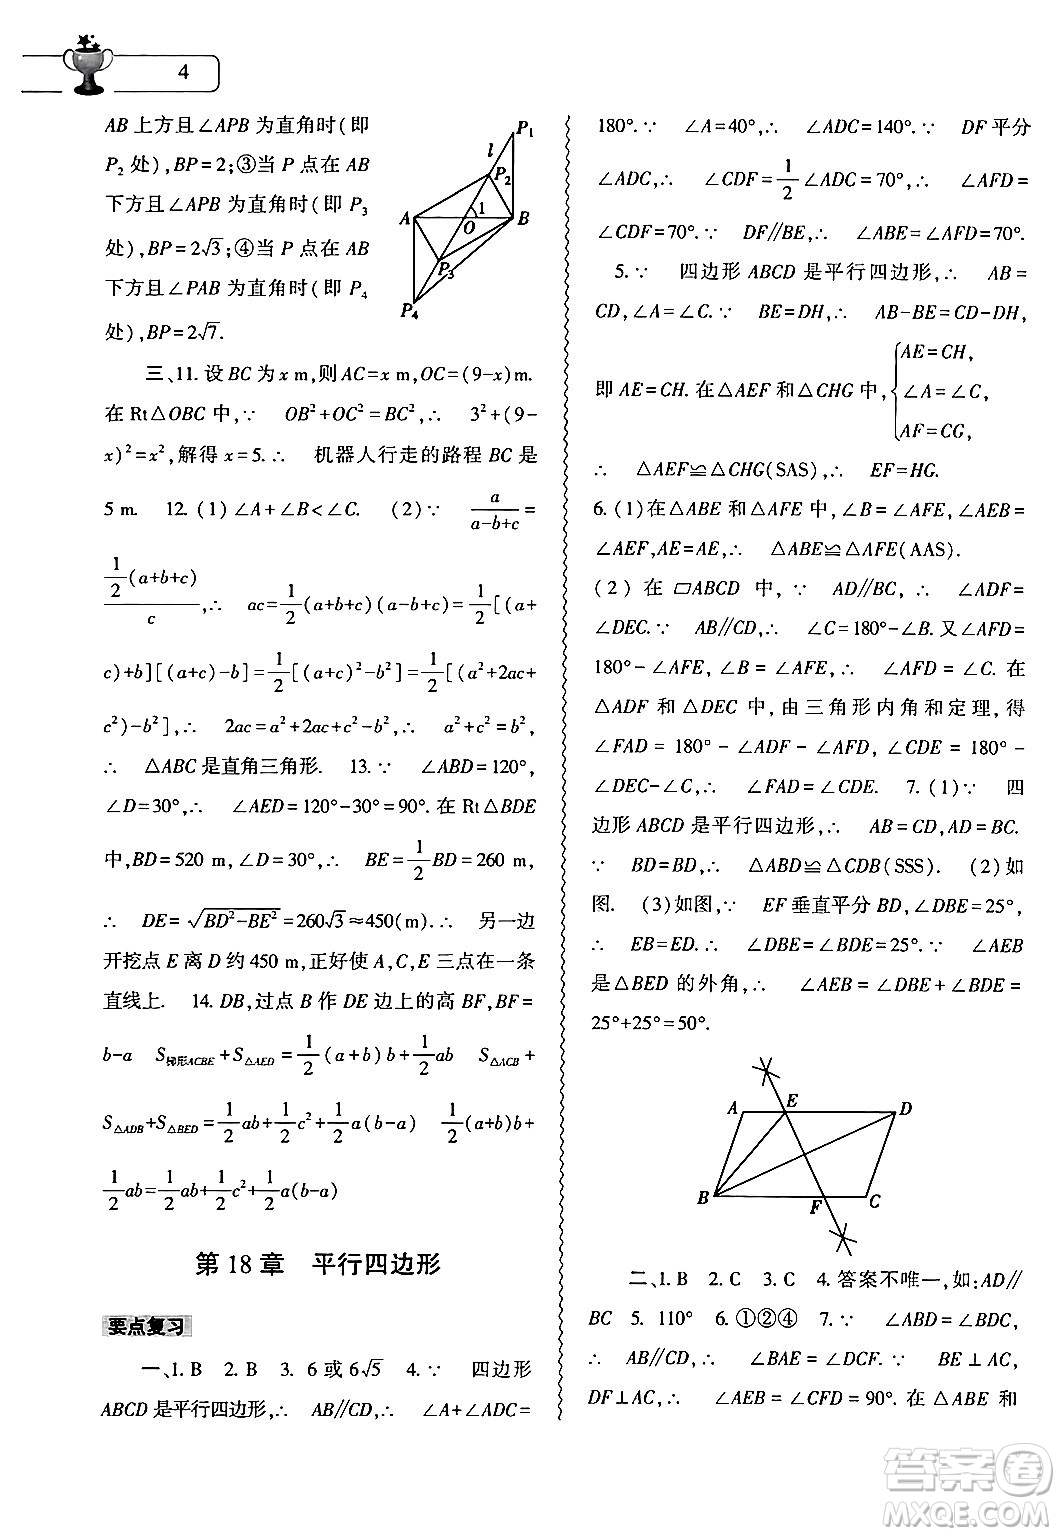 4
AB 上方且∠APB 为直角时(即
P₂ 处),BP=2;③当 P 点在 AB
下方且∠APB 为直角时(即 P₃
处),BP=2√3;④当 P 点在 AB
下方且∠PAB 为直角时(即 P₄
处),BP=2√7.
P₁
l
P₂
A
1
O
B
P₃
P₄
三、11. 设 BC 为 x m,则 AC=x m,OC=(9-x)m.
在 Rt△OBC 中,∵ OB²+OC²=BC²,∴ 3²+(9-
x)²=x²,解得 x=5.∴ 机器人行走的路程 BC 是
5 m. 12. (1)∠A+∠B<∠C. (2)∵ a/(a-b+c)=
(1/2(a+b+c))/c,∴ ac=1/2(a+b+c)(a-b+c)=1/2[(a+
c)+b][(a+c)-b]=1/2[(a+c)²-b²]=1/2[(a²+2ac+
c²)-b²],∴ 2ac=a²+2ac+c²-b²,∴ a²+c²=b²,
∴ △ABC 是直角三角形. 13. ∵ ∠ABD=120°,
∠D=30°,∴ ∠AED=120°-30°=90°. 在 Rt△BDE
中,BD=520 m,∠D=30°,∴ BE=1/2BD=260 m,
∴ DE=√(BD²-BE²)=260√3≈450(m).∴ 另一边
开挖点 E 离 D 约 450 m,正好使 A,C,E 三点在一条
直线上. 14. DB,过点 B 作 DE 边上的高 BF,BF=
b-a S梯形ACBE+S△AED=1/2(a+b)b+1/2ab S△ACB+
S△ADB+S△BED=1/2ab+1/2c²+1/2a(b-a) 1/2(a+b)b+
1/2ab=1/2ab+1/2c²+1/2a(b-a)
第 18 章 平行四边形
要点复习
一、1. B 2. B 3. 6 或 6√5 4. ∵ 四边形
ABCD 是平行四边形,∴ AB∥CD,∴ ∠A+∠ADC=
180°.∵ ∠A=40°,∴ ∠ADC=140°.∵ DF 平分
∠ADC,∴ ∠CDF=1/2∠ADC=70°,∴ ∠AFD=
∠CDF=70°.∵ DF∥BE,∴ ∠ABE=∠AFD=70°.
5. ∵ 四边形 ABCD 是平行四边形,∴ AB=
CD,∠A=∠C.∵ BE=DH,∴ AB-BE=CD-DH,
即 AE=CH. 在△AEF 和△CHG 中,{AE=CH,
∠A=∠C,
AF=CG,
∴ △AEF≌△CHG(SAS),∴ EF=HG.
6. (1)在△ABE 和△AFE 中,∠B=∠AFE,∠AEB=
∠AEF,AE=AE,∴ △ABE≌△AFE(AAS).
(2) 在 ▱ABCD 中,∵ AD∥BC,∴ ∠ADF=
∠DEC.∵ AB∥CD,∴ ∠C=180°-∠B. 又∠AFD=
180°-∠AFE,∠B=∠AFE,∴ ∠AFD=∠C. 在
△ADF 和△DEC 中,由三角形内角和定理,得
∠FAD=180°-∠ADF-∠AFD,∠CDE=180°-
∠DEC-∠C,∴ ∠FAD=∠CDE. 7. (1)∵ 四
边形 ABCD 是平行四边形,∴ AB=CD,AD=BC.
∵ BD=BD,∴ △ABD≌△CDB(SSS). (2)如
图. (3)如图,∵ EF 垂直平分 BD,∠DBE=25°,
∴ EB=ED.∴ ∠DBE=∠BDE=25°.∵ ∠AEB
是△BED 的外角,∴ ∠AEB=∠DBE+∠BDE=
25°+25°=50°.
A
E
D
B
F
C
二、1. B 2. C 3. C 4. 答案不唯一,如:AD∥
BC 5. 110° 6. ①②④ 7. ∵ ∠ABD=∠BDC,
∴ AB∥CD,∴ ∠BAE=∠DCF.∵ BE⊥AC,
DF⊥AC,∴ ∠AEB=∠CFD=90°. 在△ABE 和
答案圈
MXQE.COM